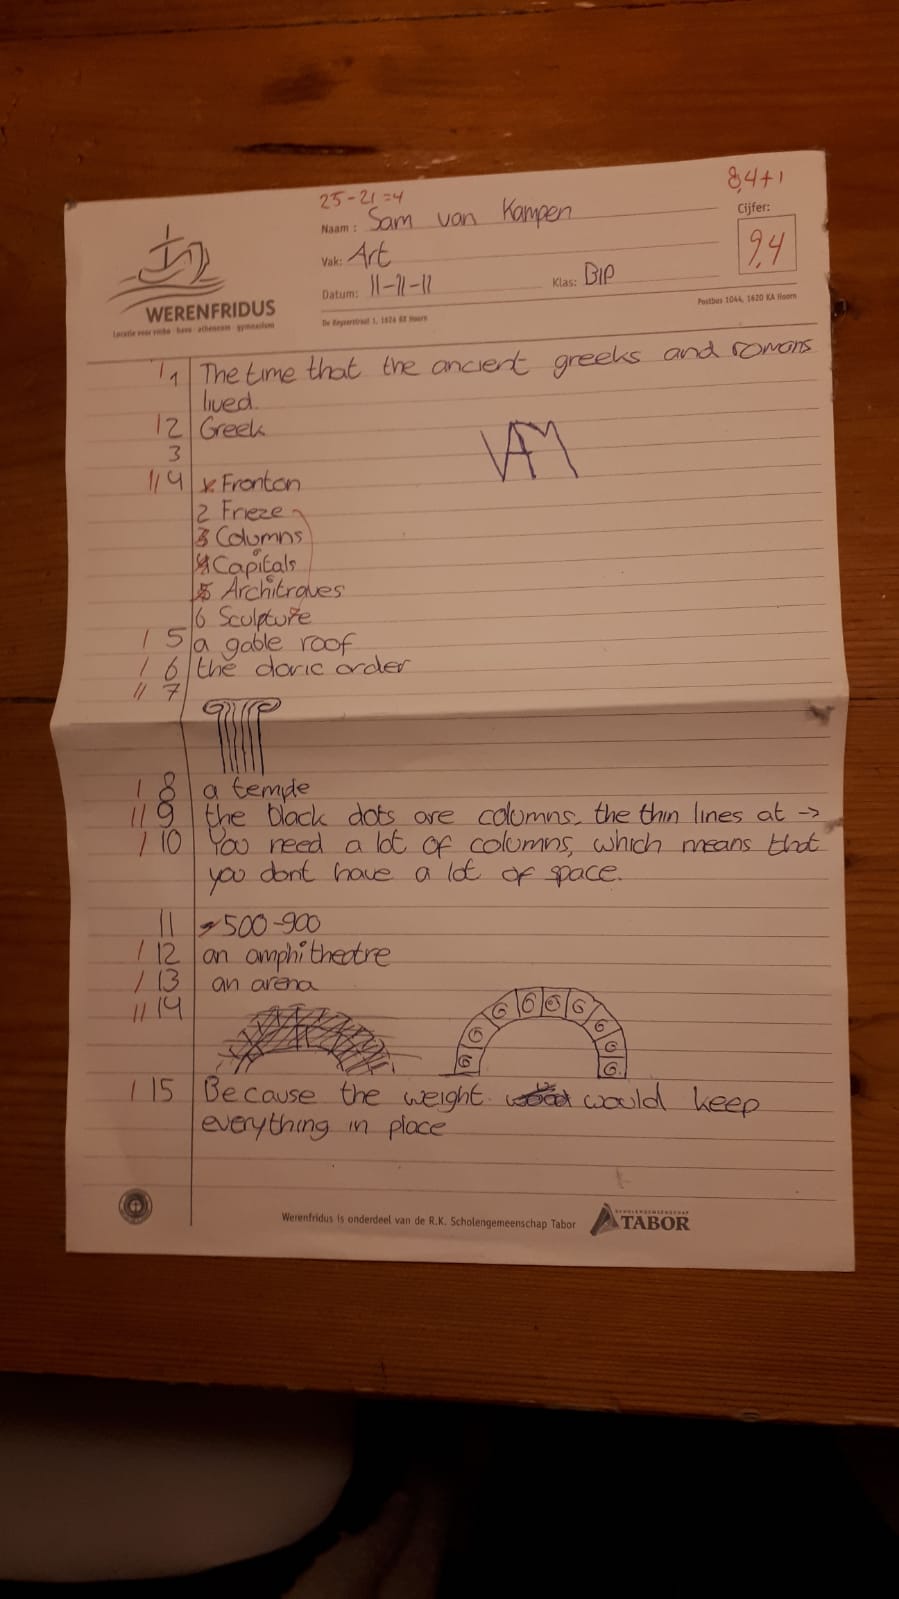 25-21=4
8,4+1
Naam: Sam van Kampen
Cijfer:
9,4
Vak: Art
Datum: 11-11-11 Klas: B1P
WERENFRIDUS
Locatie voor vmbo · havo · atheneum · gymnasium
De Keyzerstraat 1, 1624 Hoorn
Postbus 1044, 1620 KA Hoorn
1 The time that the ancient greeks and romans
lived.
2 Greek
3
4 1. Fronton
2 Frieze
3 Columns
4 Capitals
5 Architraves
6 Sculpture
5 a gable roof
6 the doric order
7
8 a temple
9 the black dots are columns, the thin lines at ->
10 You need a lot of columns, which means that
you dont have a lot of space.
11 500-900
12 an amphitheatre
13 an arena
14
15 Because the weight would keep
everything in place
Werenfridus is onderdeel van de R.K. Scholengemeenschap Tabor
SCHOLENGEMEENSCHAP
TABOR